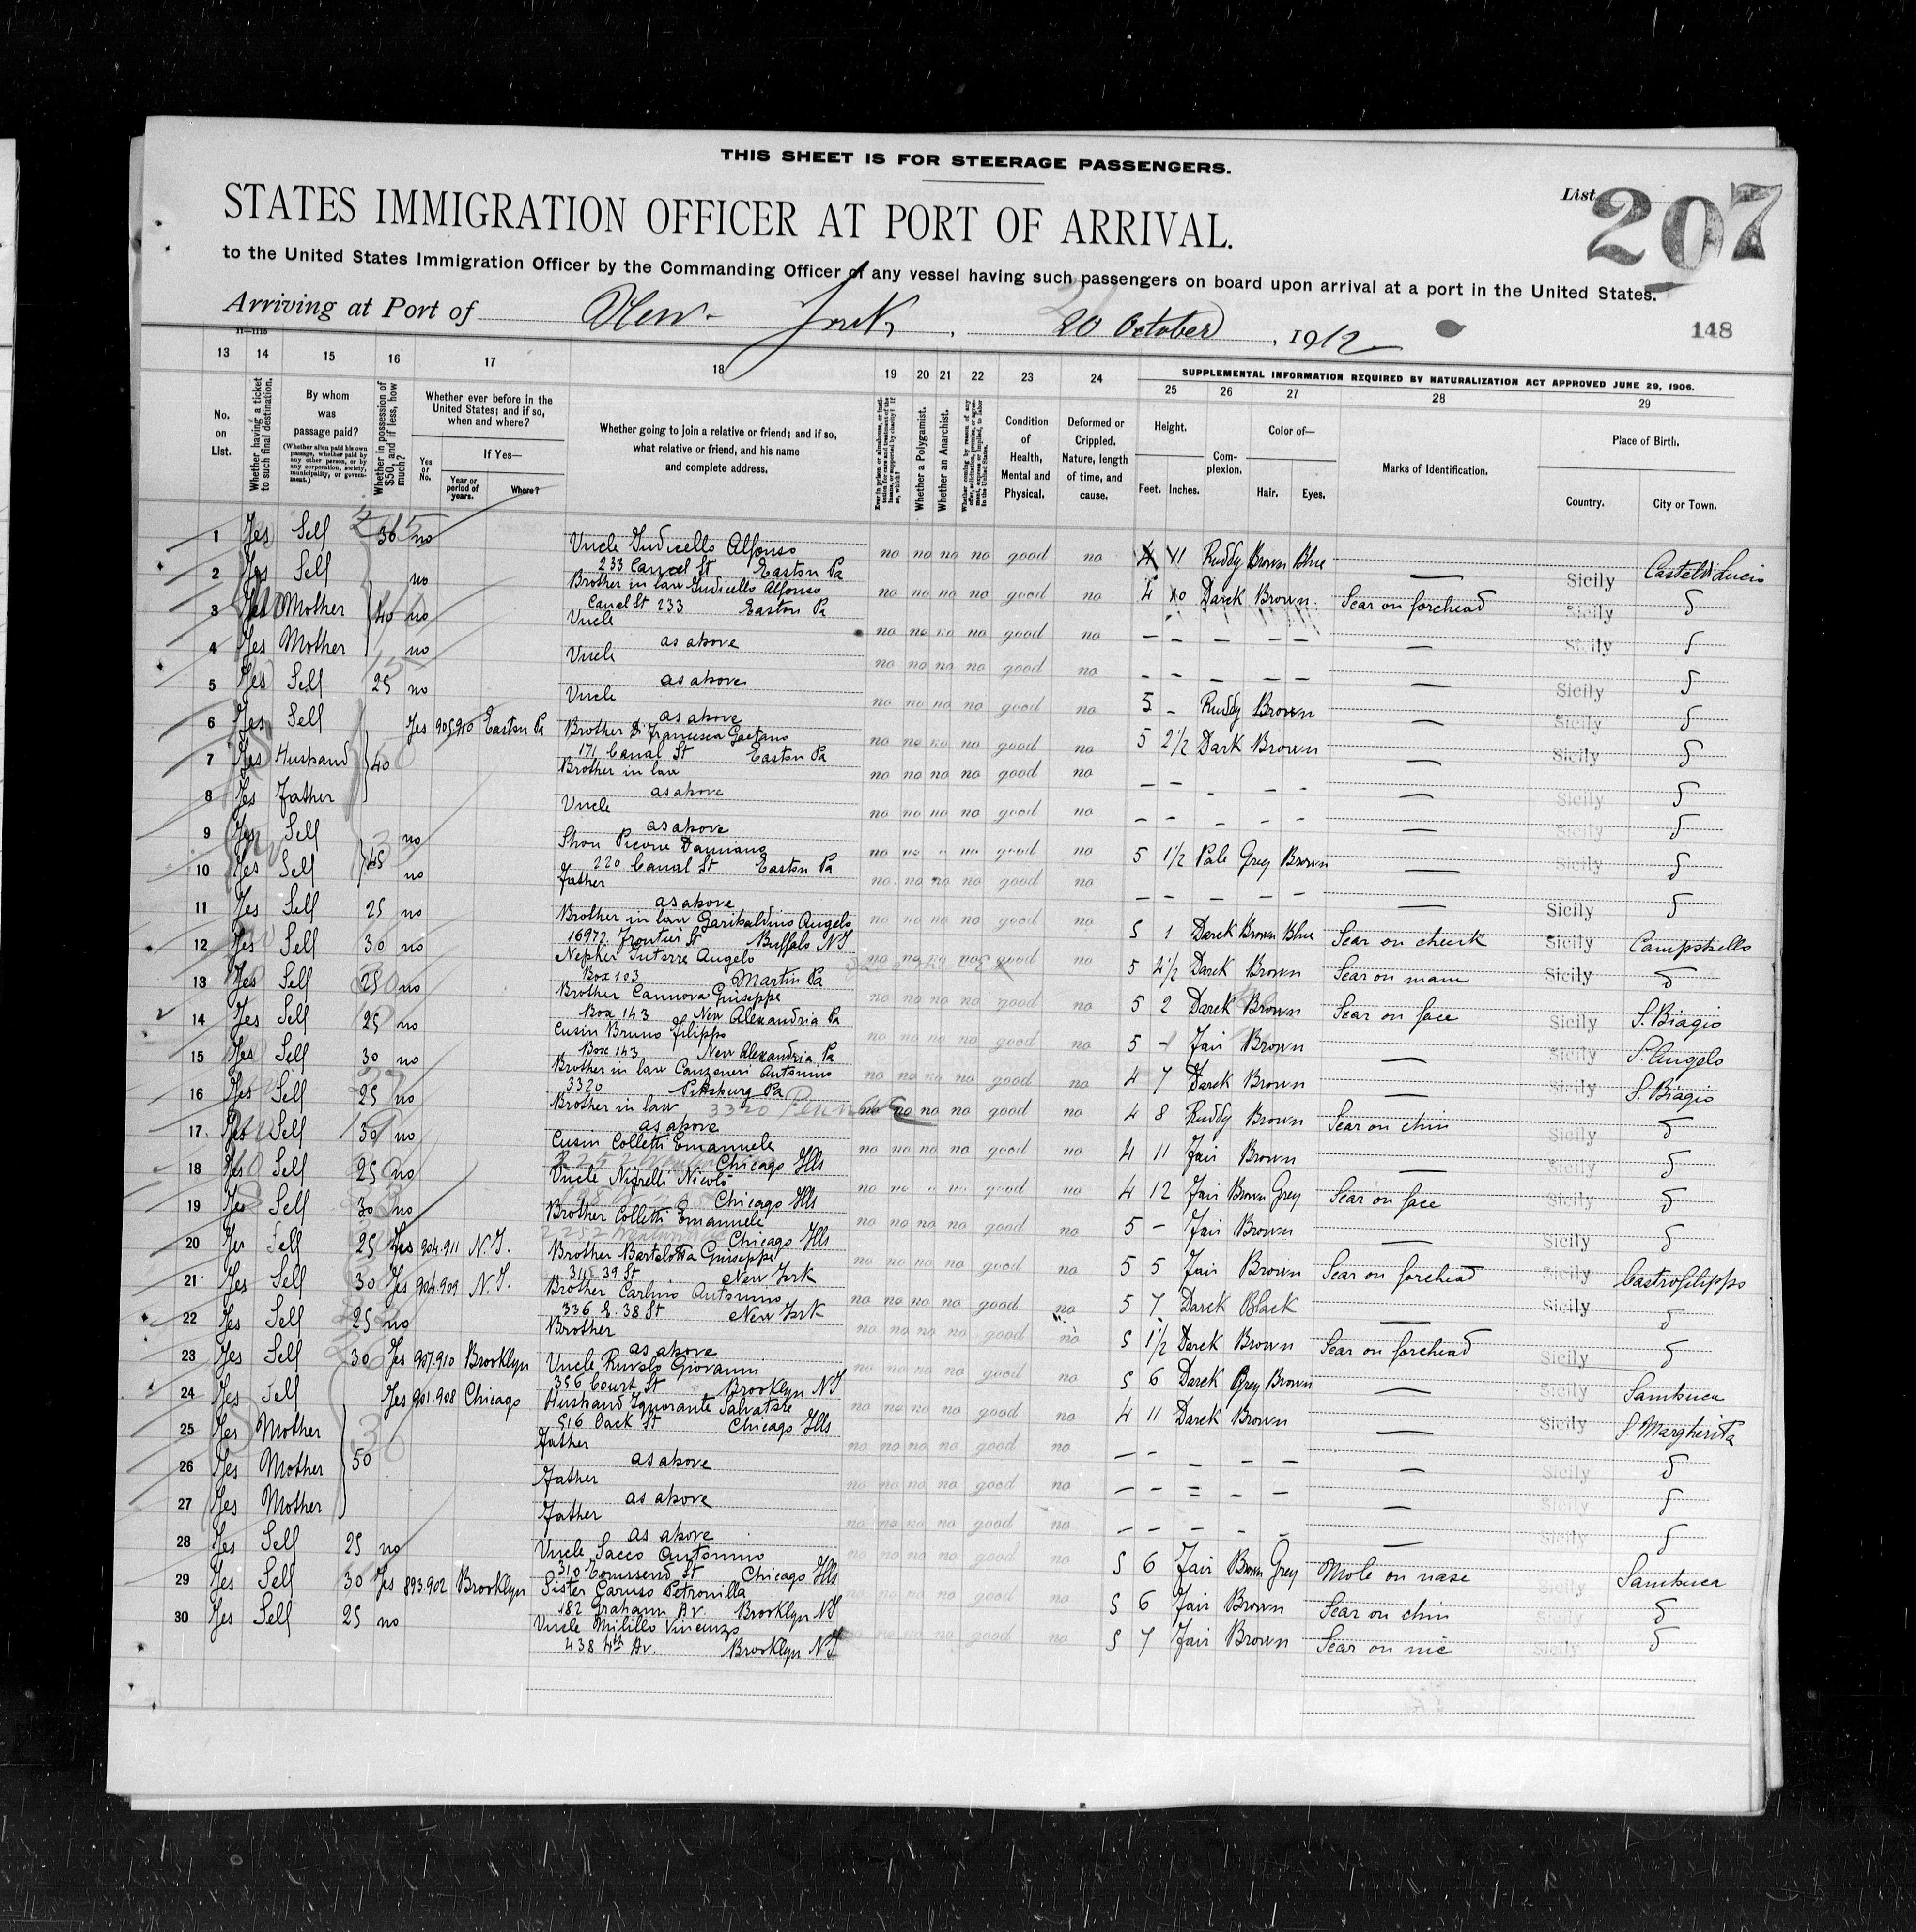 THIS SHEET IS FOR STEERAGE PASSENGERS.
STATES IMMIGRATION OFFICER AT PORT OF ARRIVAL.
List 207
to the United States Immigration Officer by the Commanding Officer of any vessel having such passengers on board upon arrival at a port in the United States.
Arriving at Port of New York, 20 October, 1912
148
13 14 15 16 17 18 19 20 21 22 23 24 25 26 27 28 29
SUPPLEMENTAL INFORMATION REQUIRED BY NATURALIZATION ACT APPROVED JUNE 29, 1906.
No. on List.
Whether having a ticket to such final destination.
By whom was passage paid?
(Whether alien paid his own passage, whether paid by any other person, or by any corporation, society, municipality, or government.)
Whether in possession of $50, and if less, how much?
Whether ever before in the United States; and if so, when and where?
Yes or No.
If Yes—
Year or period of years.
Where?
Whether going to join a relative or friend; and if so, what relative or friend, and his name and complete address.
Whether a Polygamist.
Whether an Anarchist.
Condition of Health, Mental and Physical.
Deformed or Crippled. Nature, length of time, and cause.
Height.
Feet. Inches.
Complexion.
Color of—
Hair. Eyes.
Marks of Identification.
Place of Birth.
Country. City or Town.
1 Yes Self 36 no Uncle Giudicello Alfonso no no no no good no 4 11 Ruddy Brown Blue —
233 Canal St Easton Pa Sicily Castel di Lucio
2 Yes Self no Brother in law Giudicello Alfonso no no no no good no 4 10 Darck Brown Scar on forehead
Canal St 233 Easton Pa Sicily
3 Yes Mother 40 no Uncle no no no no good no — — — — — —
as above Sicily
4 Yes Mother no Uncle no no no no good no — — — — — —
as above Sicily
5 Yes Self 25 no Uncle no no no no good no 5 - Ruddy Brown —
as above Sicily
6 Yes Self Yes 905.910 Easton Pa Brother Francesca Gaetano no no no no good no 5 2 1/2 Dark Brown —
171 Canal St Easton Pa Sicily
7 Yes Husband 40 Brother in law no no no no good no — — — — — —
as above Sicily
8 Yes Father Uncle no no no no good no — — — — — —
as above Sicily
9 Yes Self no Picone Damiano no no no good no 5 1 1/2 Pale Grey Brown —
220 Canal St Easton Pa
10 Yes Self 45 no Father no no no no good no — — — — —
as above Sicily
11 Yes Self 25 no Brother in law Garibaldino Angelo no no no no good no 5 1 Darck Brown Blue Scar on cheek
16977 Frontier St Buffalo NY Sicily Campobello
12 Yes Self 30 no Angelo no no no no good no 5 4 1/2 Darck Brown Scar on
Box 103 Martin Pa Sicily
13 Yes Self 25 no Brother Cannova Giuseppe no no no no good no 5 2 Darck Brown Scar on face
Box 143 New Alexandria Pa Sicily S. Biagio
14 Yes Self 25 no Cusin Bruno Filippo no no no no good no 5 - Fair Brown —
Box 143 New Alexandria Pa Sicily S. Angelo
15 Yes Self 30 no Brother in law Canzoneri Antonino no no no no good no 4 7 Darck Brown —
3320 Pittsburg Pa Sicily S. Biagio
16 Yes Self 25 no Brother in law 3320 Penn Ave no no no no good no 4 8 Ruddy Brown Scar on chin
as above Sicily
17 Yes Self 30 no Cusin Colletti Emanuele no no no no good no 4 11 Fair Brown —
Chicago Ills Sicily
18 Yes Self 25 no Uncle Nigrelli Nicolò no no good no 4 12 Fair Brown Grey Scar on face
Chicago Ills Sicily
19 Yes Self 30 no Brother Colletti Emanuele no no no no good no 5 - Fair Brown —
Chicago Ills Sicily
20 Yes Self 25 Yes 904.911 N.Y. Brother Bartolotta Giuseppe no no no no good no 5 5 Fair Brown Scar on forehead
39 St New York Sicily Castrofilippo
21 Yes Self 30 Yes 904.909 N.Y. Brother Carlino Antonino no no no no good no 5 7 Darck Black —
336 E. 38 St New York Sicily
22 Yes Self 25 no Brother no no no no good no 5 1 1/2 Darck Brown Scar on forehead
as above Sicily
23 Yes Self 30 Yes 907.910 Brooklyn Uncle Ruvolo Giovanni no no no no good no 5 6 Darck Grey Brown —
356 Court St Brooklyn NY Sicily Sambuca
24 Yes Self Yes 901.908 Chicago Husband Ignorante Salvatore no no no no good no 4 11 Darck Brown —
516 Oack St Chicago Ills Sicily S. Margherita
25 Yes Mother Father no no no no good no — — — — — —
as above Sicily
26 Yes Mother 50 Father no no no no good no — — — — — —
as above Sicily
27 Yes Mother Father no no no no good no — — — — — —
as above Sicily
28 Yes Self 25 no Uncle Sacco Antonino no no no no good no 5 6 Fair Brown Grey Mole on nase
310 Townsend St Chicago Ills Sicily Sambuca
29 Yes Self 30 Yes 893.902 Brooklyn Sister Caruso Petronilla no no no no good no 5 6 Fair Brown Scar on chin
182 Graham Av. Brooklyn NY Sicily
30 Yes Self 25 no Uncle Milillo Vincenzo no no no good no 5 7 Fair Brown Scar on
438 4th Av. Brooklyn NY Sicily